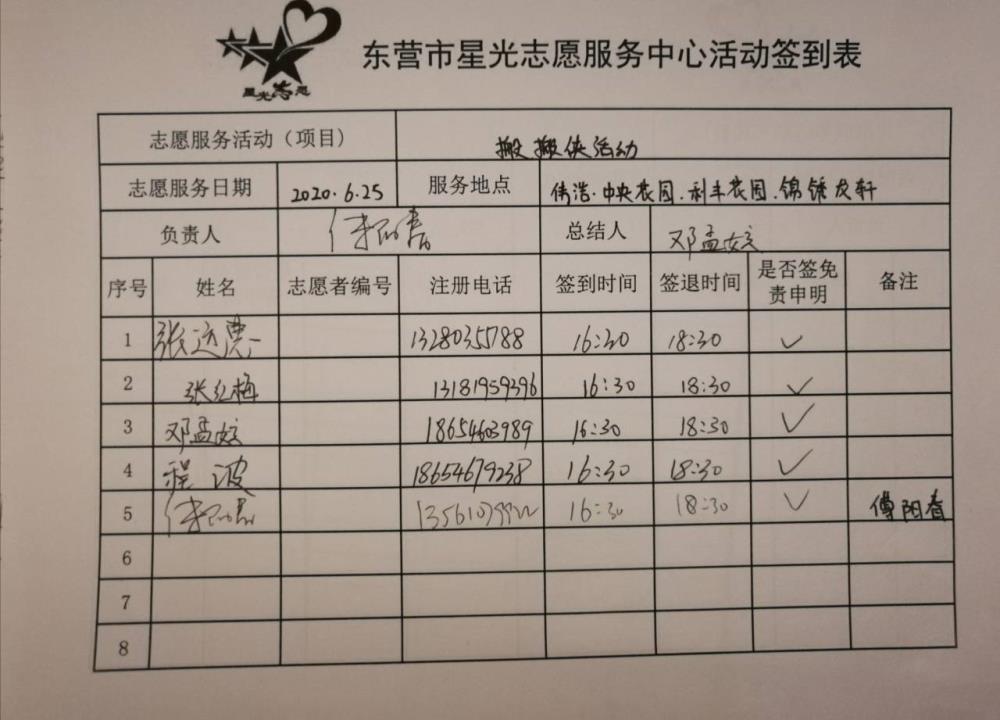 东营市星光志愿服务中心活动签到表
星光志愿
志愿服务活动（项目） 搬搬侠活动
志愿服务日期 2020.6.25 服务地点 伟浩.中央花园.利丰花园.锦绣友轩
负责人 总结人 邓孟姣
序号 姓名 志愿者编号 注册电话 签到时间 签退时间 是否签免责申明 备注
1 张运 13280355788 16:30 18:30 ✓
2 张红梅 13181959396 16:30 18:30 ✓
3 邓孟姣 18654603989 16:30 18:30 ✓
4 程波 18654679238 16:30 18:30 ✓
5 16:30 18:30 ✓ 傅阳春
6
7
8